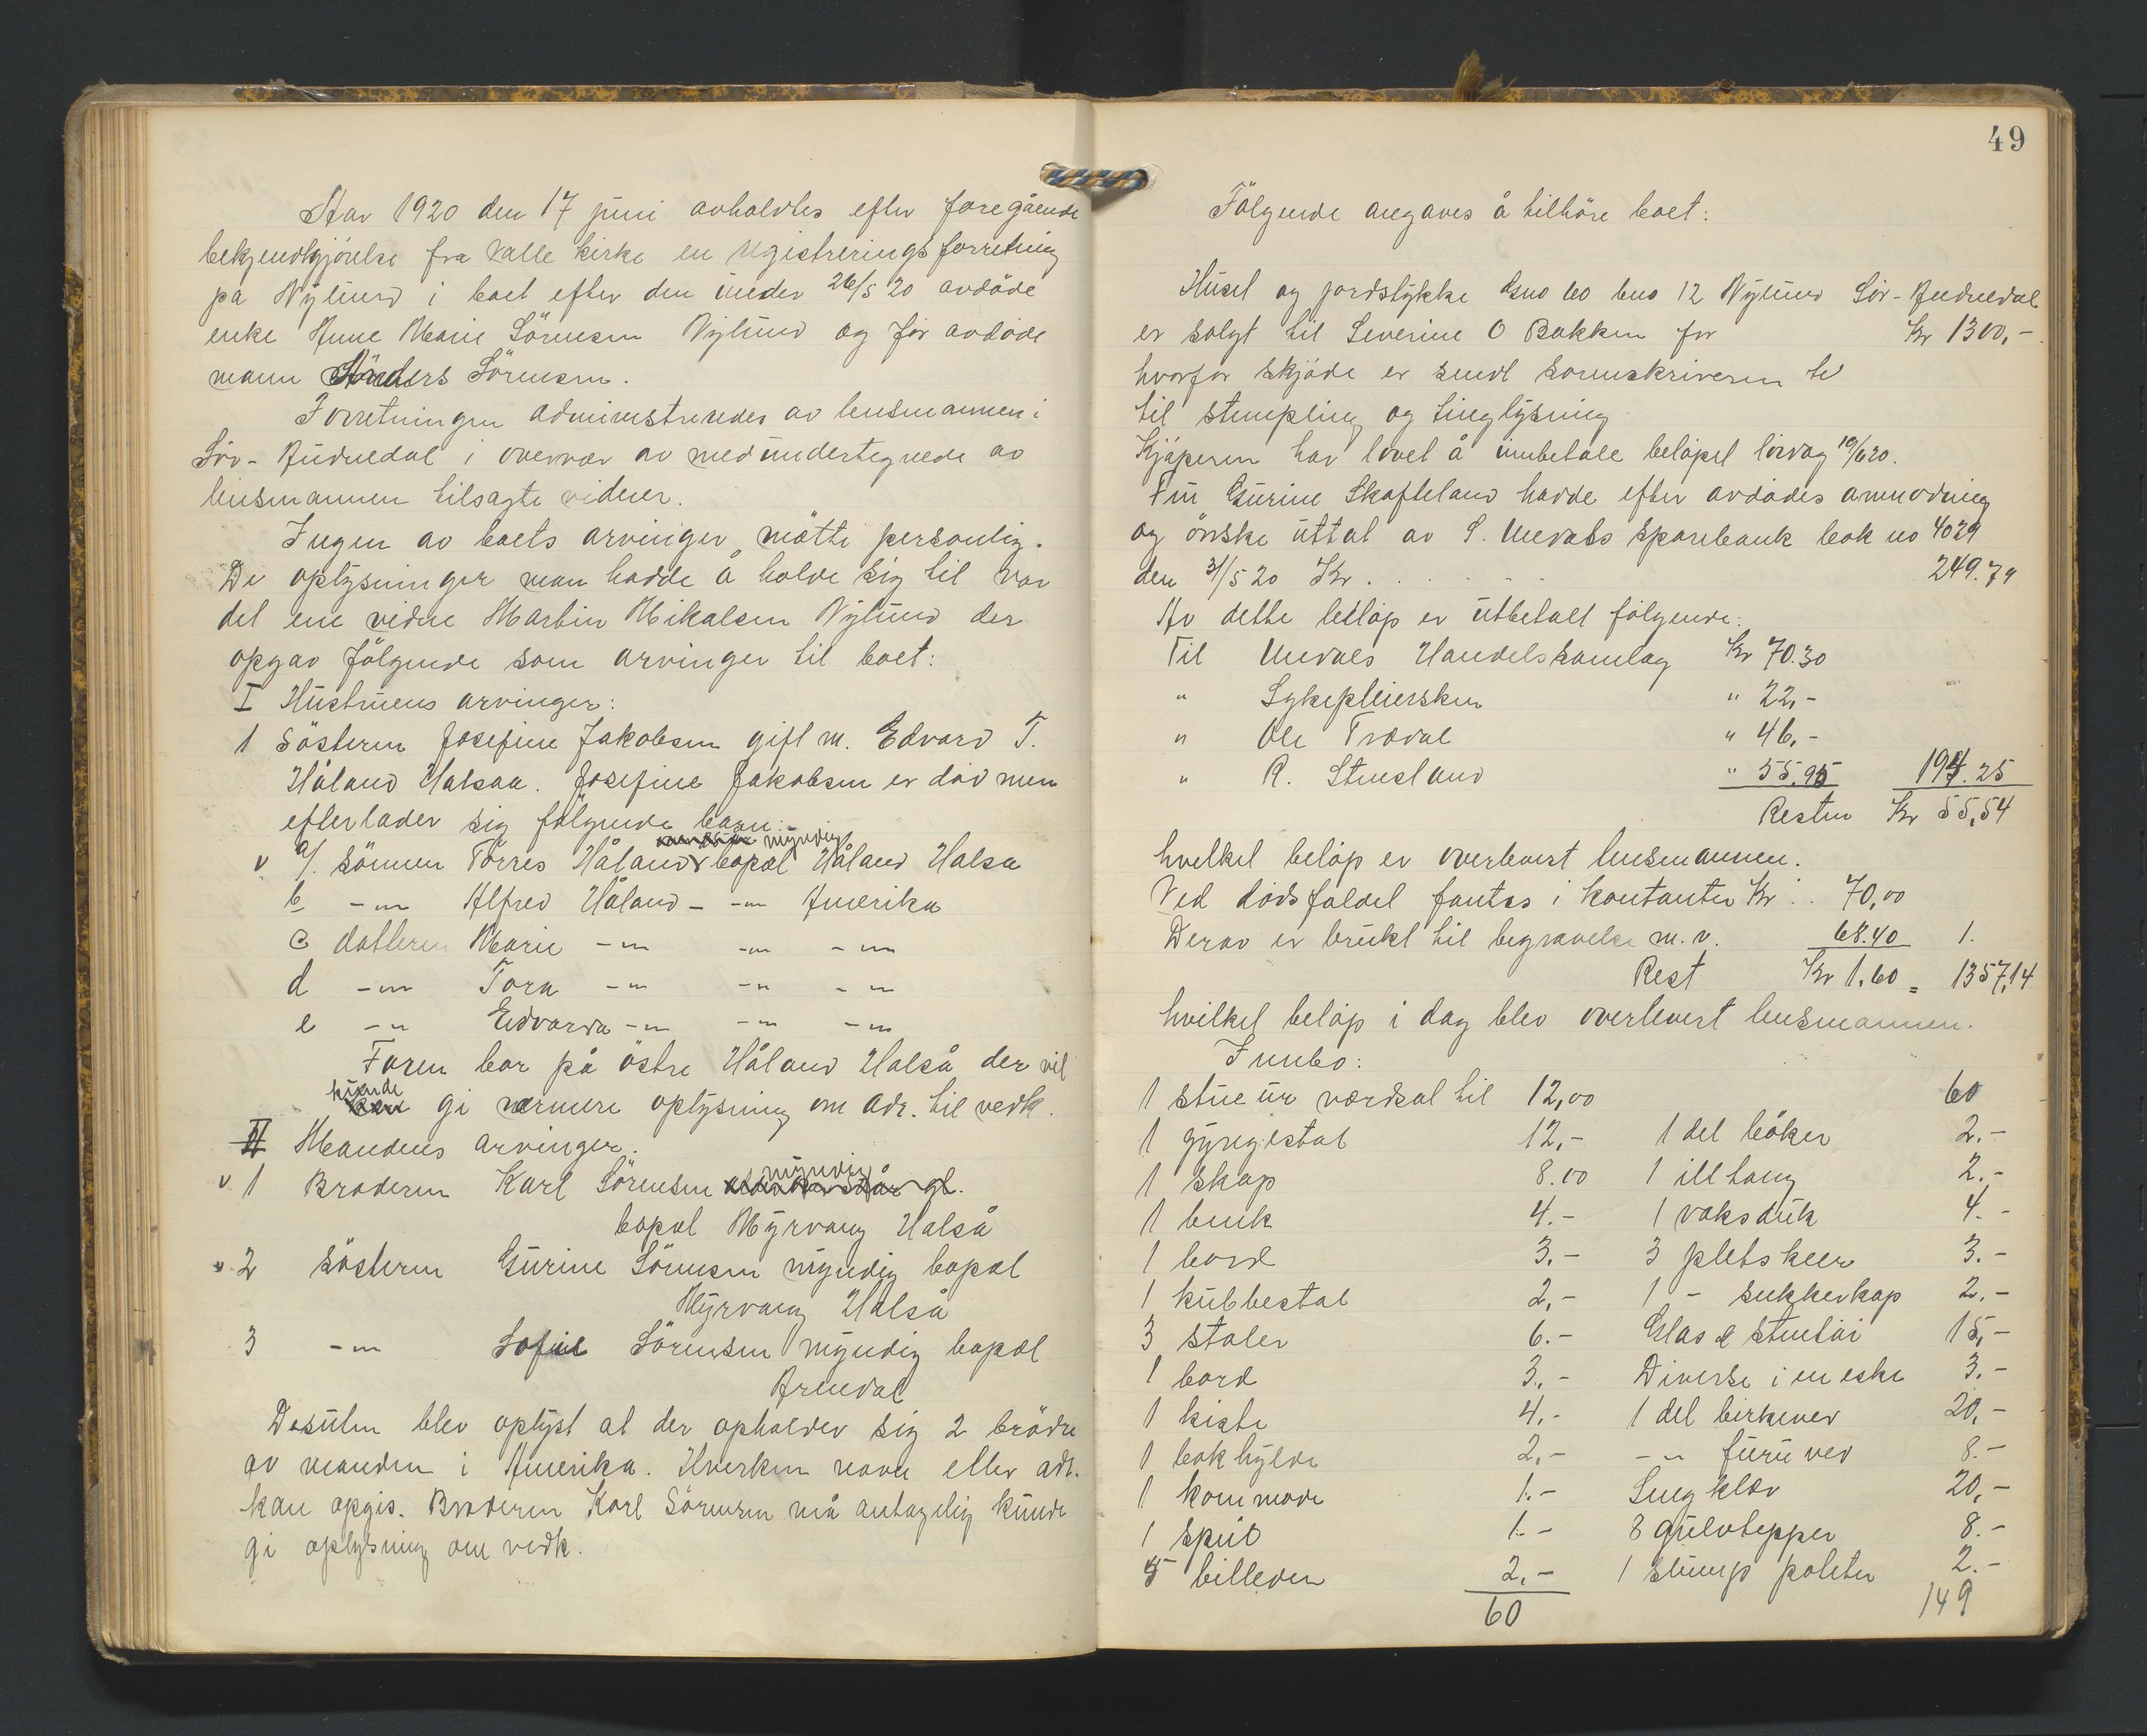 Aar 1920 den 17 juni avholdtes efter foregående
bekjendtgjörelse fra Valle kirke en registreringsforretning
på Nylund i boet efter den under 26/5 20 avdöde
enke Anne Marie Sörensen Nylund og för avdöde
mann Anders Sörensen.
Forretningen administreredes av lensmannen i
Sör-Audnedal i overvær av medundertegnede av
lensmannen tilsagte vidner.
Ingen av boets arvinger mötte personlig.
De oplysninger man hadde å holde sig til var
det ene vidne Martin Mikalsen Nylund der
opgav fölgende som arvinger til boet:
I Hustruens arvinger:
1 Sösteren Josefine Jakobsen gift m. Edvard T.
Håland Halsaa. Josefine Jakobsen er död men
efterlader sig fölgende barn:
myndig
v a/. sönnen Törres Håland bopæl Håland Halsa
b -"- Alfred Håland - -"- Amerika
c datteren Marie -"- -"- -"-
d -"- Tora -"- -"- -"-
e -"- Edvarda -"- -"- -"-
Faren bor på östre Håland Halså der vil
kunde
gi nærmere oplysning om adr. til vedk.
II Mandens arvinger.
myndig
v 1 Broderen Karl Sörensen gl.
bopæl Myrvang Halså
v 2 Sösteren Gurine Sörensen myndig bopæl
Myrvang Halså
3 -"- Sofie Sörensen myndig bopæl
Arendal
Desuten blev oplyst at der opholder sig 2 brödre
av manden i Amerika. Hverken navn eller adr.
kan opgis. Broderen Karl Sörensen må antagelig kunde
gi oplysning om vedk.
49
Fölgende angaves å tilhöre boet:
Huset og jordstykke Gno 60 bno 12 Nylund Sör-Audnedal
er solgt til Severine O Bakken for Kr 1300,-
hvorfor skjöde er sendt sorenskriveren
til stempling og tinglysning
Kjöperen har lovet å innbetale belöpet lördag 19/6 20.
Fru Gurine Skofteland hadde efter avdödes anmodning
og önske uttat av S. Undals sparebank bok no 4029
den 31/5 20 Kr. . . . . . . 249.79
Av dette belöp er utbetalt fölgende:
Til Undals Handelssamlag Kr 70.30
" Sykepleiersken " 22,-
" Ole Trædal " 46,-
" R. Stusland " 55.95 194.25
Resten Kr 55,54
hvilket belöp er overlevert lensmannen.
Ved dödsfaldet fantes i kontanter Kr . . 70,00
Derav er brukt til begravelse m.v. 68.40 1.
Rest Kr 1.60 = 1357,14
hvilket belöp i dag blev overlevert lensmannen.
Innbo:
1 stue ur værdsat til 12,00 60
1 gyngestol 12,- 1 del böker 2.-
1 skap 8.00 1 illtang 2.-
1 benk 4.- 1 voksduk 4.-
1 bord 3.- 3 pletskeer 3.-
1 kubbestol 2,- 1 - sukkerkop 2.-
3 stoler 6.- Glas & stentöi 15,-
1 bord 3.- Diverse i en eske 3.-
1 kiste 4,- 1 del birkeved 20,-
1 bokhylde 2,- -"- furu ved 8.-
1 kommode 1.- Sengklær 20,-
1 speil 1.- 3 gulvtepper 8.-
5 billeder 2,- 1 slump poteter 2.-
60 149